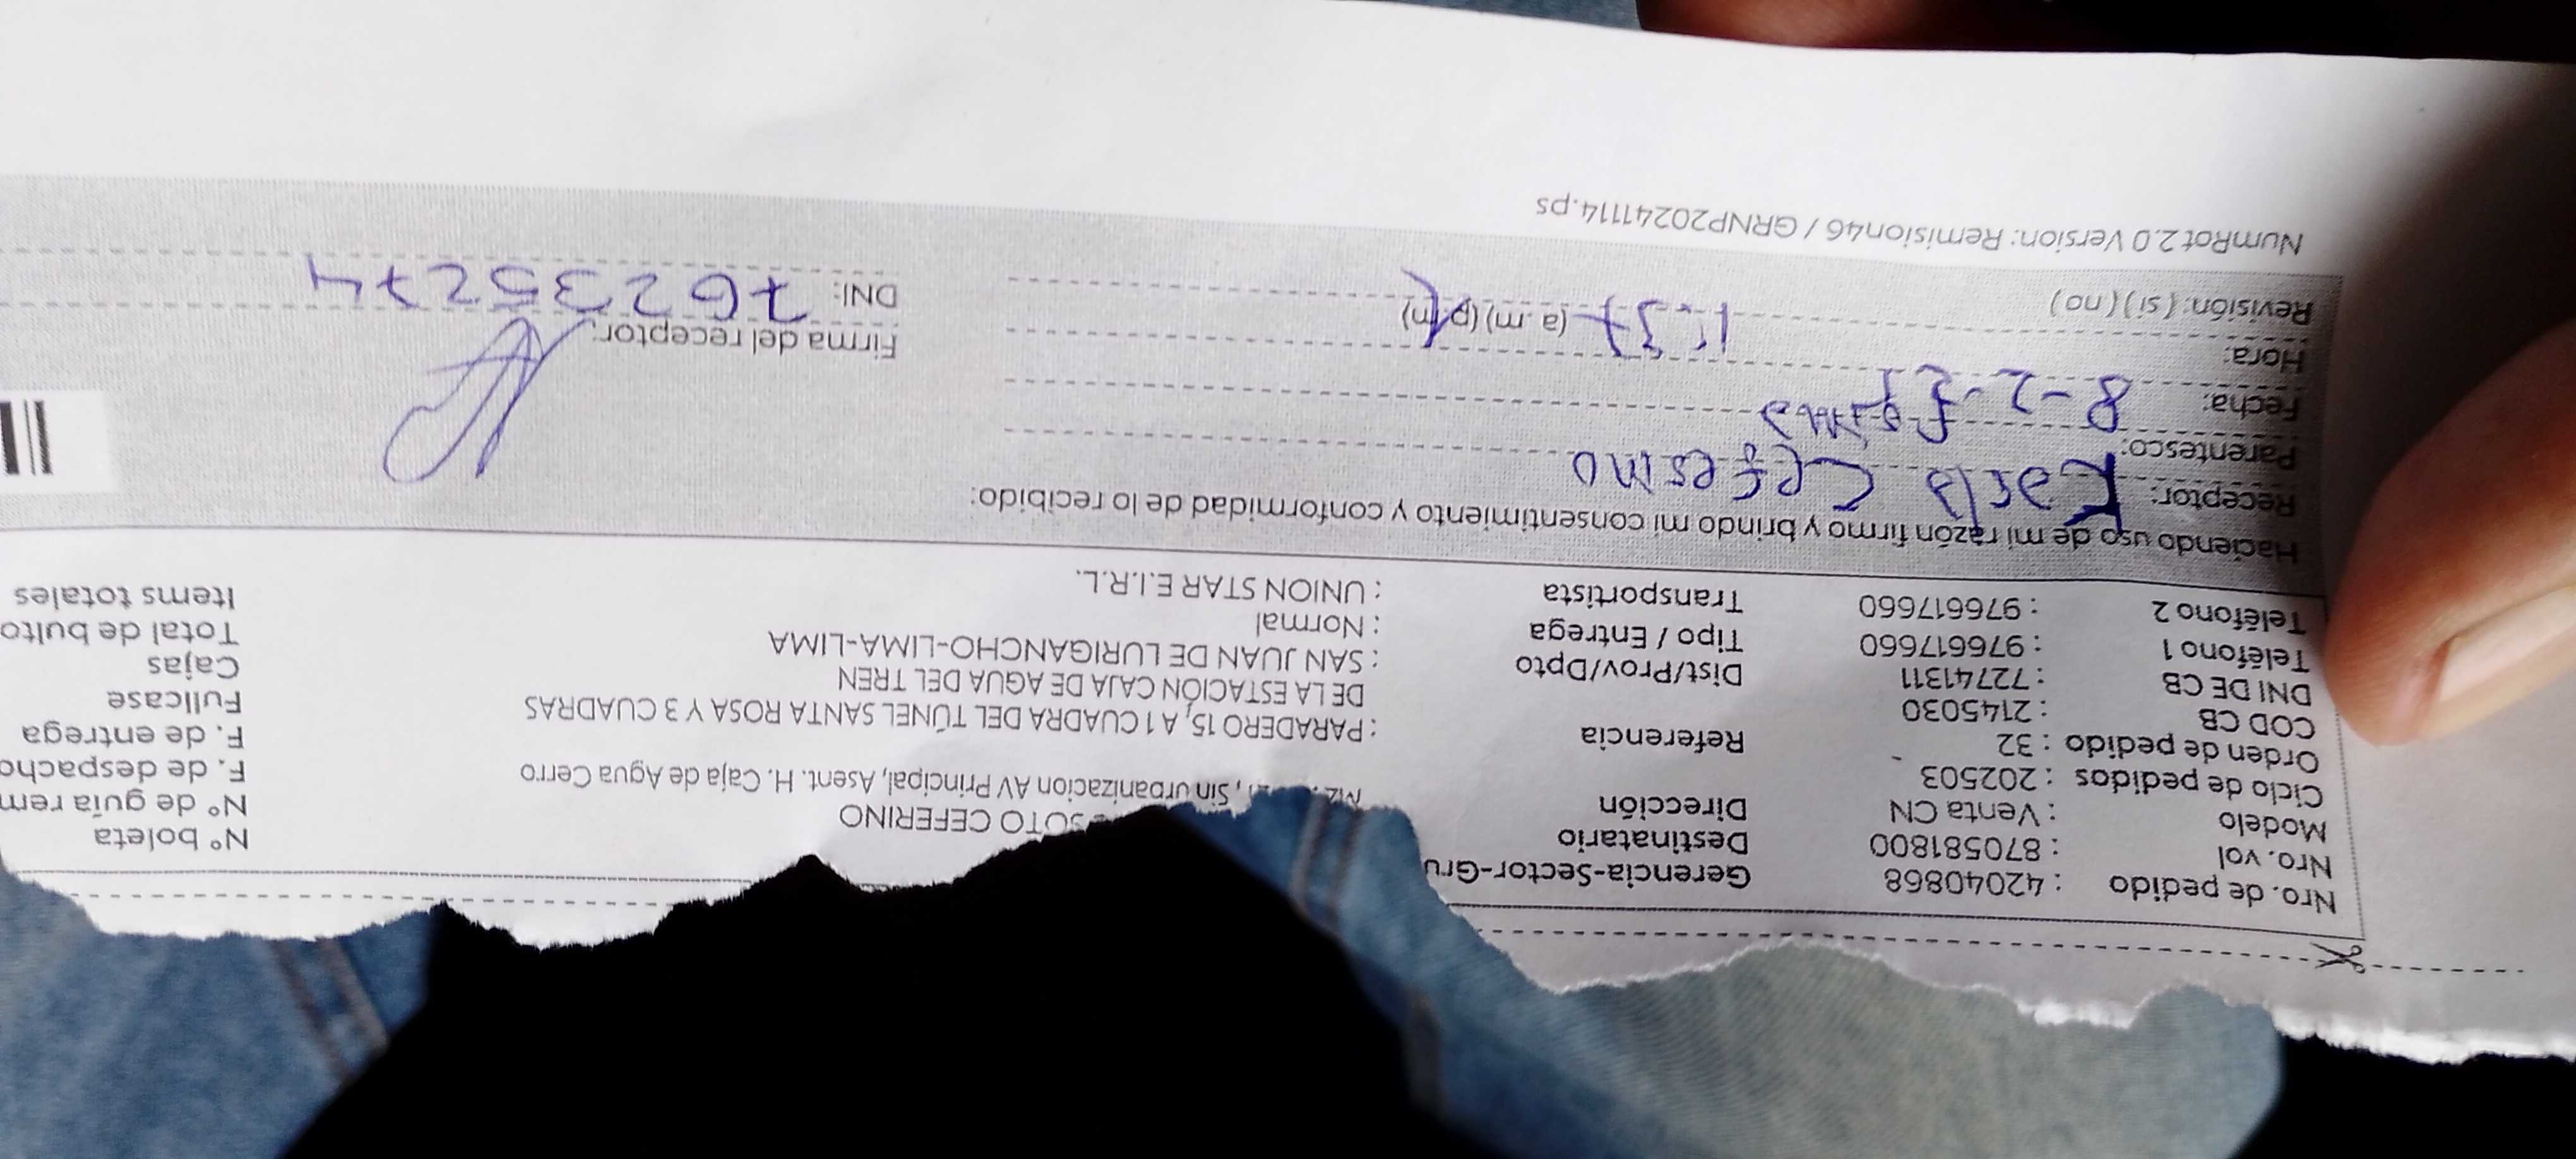 Nro. de pedido : 42040868
Nro. vol : 870581800
Modelo : Venta CN
Ciclo de pedidos : 202503
Orden de pedido : 32
COD CB : 2145030
DNI DE CB : 72741311
Teléfono 1 : 976617660
Teléfono 2 : 976617660
Gerencia-Sector-Gru
Destinatario SOTO CEFERINO
Dirección , Sin urbanizacion AV Principal, Asent. H. Caja de Agua Cerro
Referencia : PARADERO 15, A 1 CUADRA DEL TÚNEL SANTA ROSA Y 3 CUADRAS
DE LA ESTACIÓN CAJA DE AGUA DEL TREN
Dist/Prov/Dpto : SAN JUAN DE LURIGANCHO-LIMA-LIMA
Tipo / Entrega : Normal
Transportista : UNION STAR E.I.R.L.
N° boleta
N° de guía rem
F. de despacho
F. de entrega
Fullcase
Cajas
Total de bulto
Items totales
Haciendo uso de mi razón firmo y brindo mi consentimiento y conformidad de lo recibido:
Receptor: Karla
Parentesco:
Fecha: 8-2-
Hora: 1:37 (a.m) (p.m)
Revisión: (si) (no)
Firma del receptor:
DNI: 76235274
NumRot 2.0 Versión: Remision46 / GRNP20241114.ps